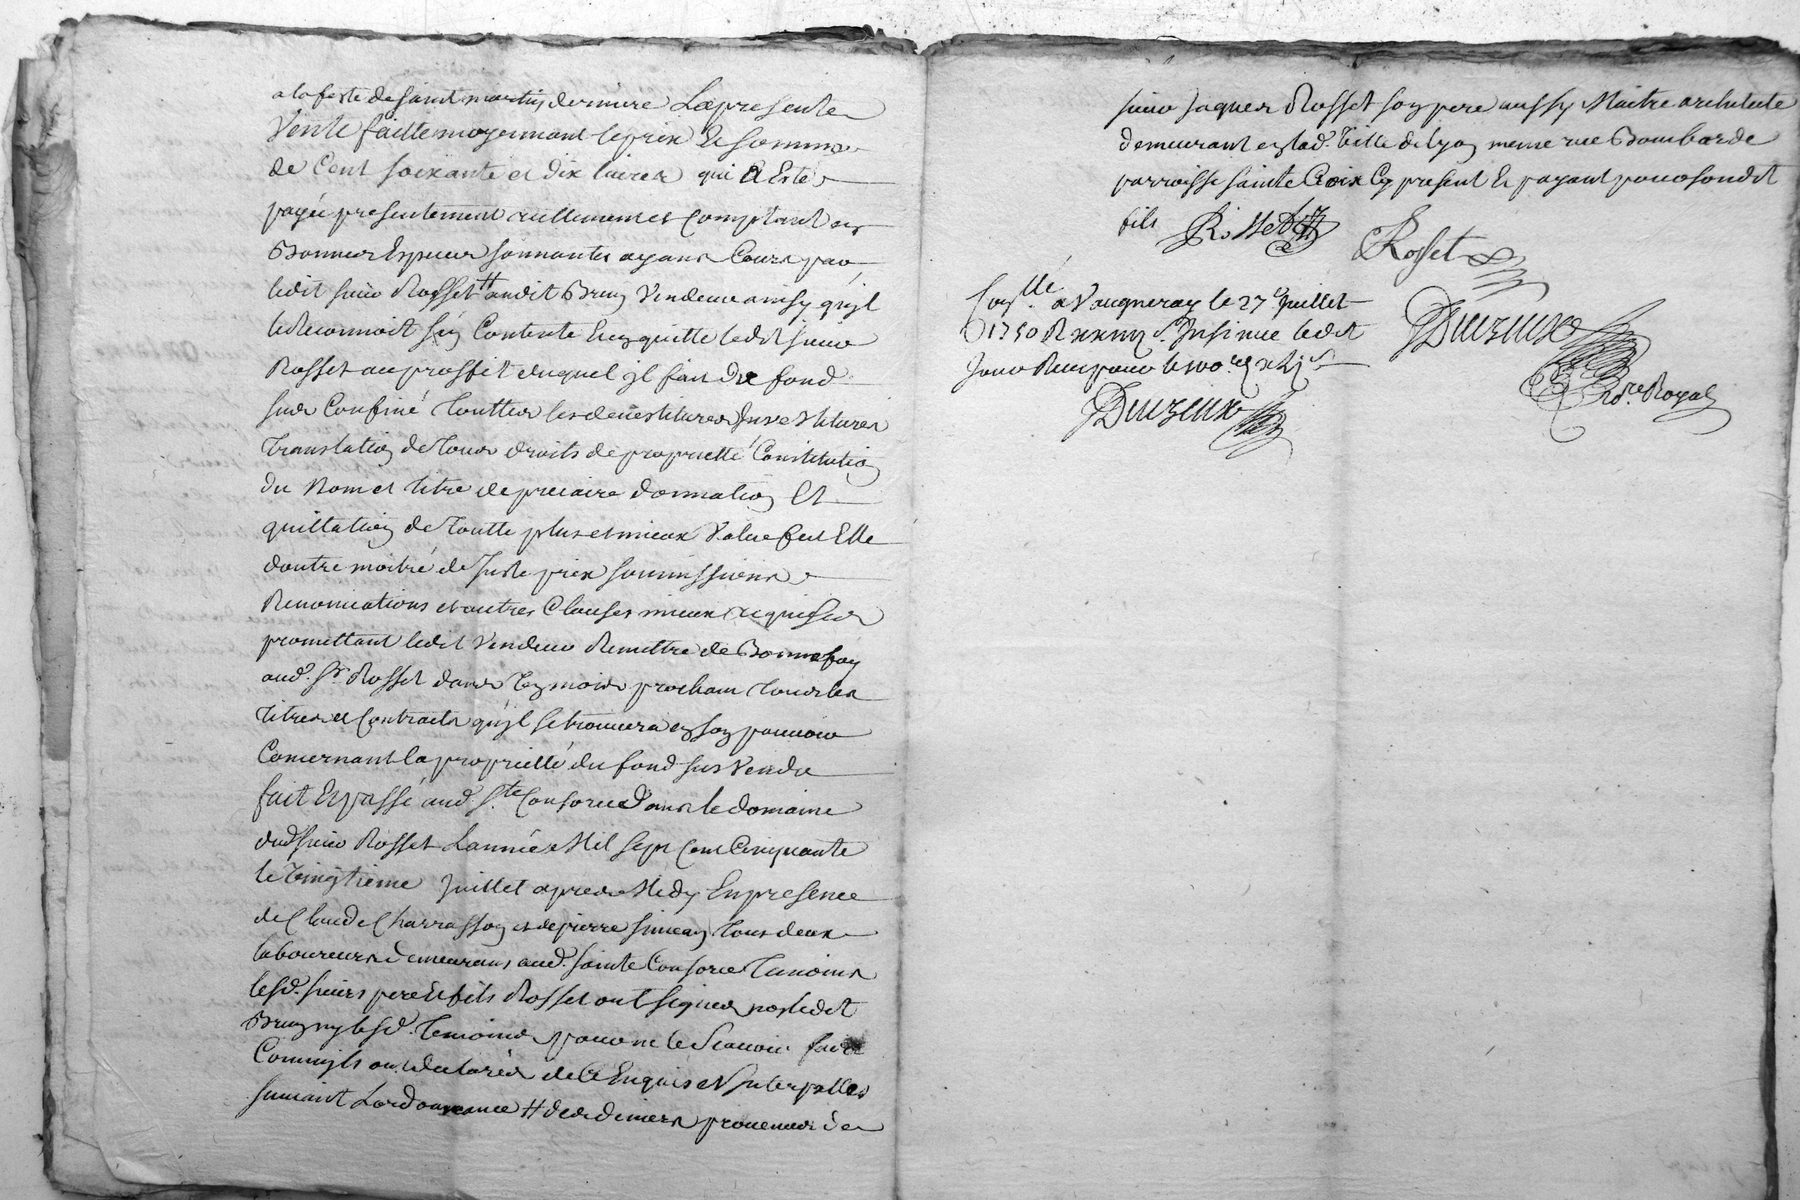 a la feste de saint martin derniere La presente
Vente faitte moyennant le prix et somme
de Cent soixante et dix livres qui a Esté
payée presentement reellement et Comptant en
Bonnes Especes sonnantes ayans Cours par
ledit sieur Rosset # audit Brun Vendeur ainsy qu'jl
le Reconnoit s'en Contente En quitte ledit sieur
Rosset au proffit duquel jl fait du fond
sus Confiné Touttes les devestitures Jnvestitures
Translation de Tous droits de proprietté Constitution
du Nom et titre de precaire donnation Et
quittation de Toutte plus et mieux Value fut Elle
d'outre moitié de Juste prix soumissions
Renonciations et autres Clauses mieux requises
promettant ledit Vendeur Remettre de Bonne foy
aud. Sr. Rosset dans Un mois prochain Tous les
titres et Contracts qu'jl se trouvera en son pouvoir
Concernant la proprietté du fond sus Vendu
fait Et passé aud. Ste. Consorce dans le domaine
dud sieur Rosset L'année Mil sept Cent Cinquante
le Vingtieme Juillet apres Midy En presence
de Claude Charrasson et de pierre simean Tous deux
laboureurs demeurans aud. sainte Consorce Temoins
lesd. sieurs pere Et fils Rosset ont signes non ledit
Brun ny lesd. Temoins pour ne le Scavoir faire
Comm'jls ont declarés de ce Enquis et Jnterpellés
suivant L'ordonnance # des deniers provenus de
sieur Jaques Rosset son pere aussy Maitre architecte
demeurant en lad. Ville de lyon meme rue Bombarde
parroisse sainte Croix Cy present Et payant pour sondit
fils Rosset
Rosset
Conllé a Vaugneray le 27e Juillet
1750 R Jnsinué ledit
Jour Recu pour le 100e
Duzeux
Duzeux
Nore. Royal